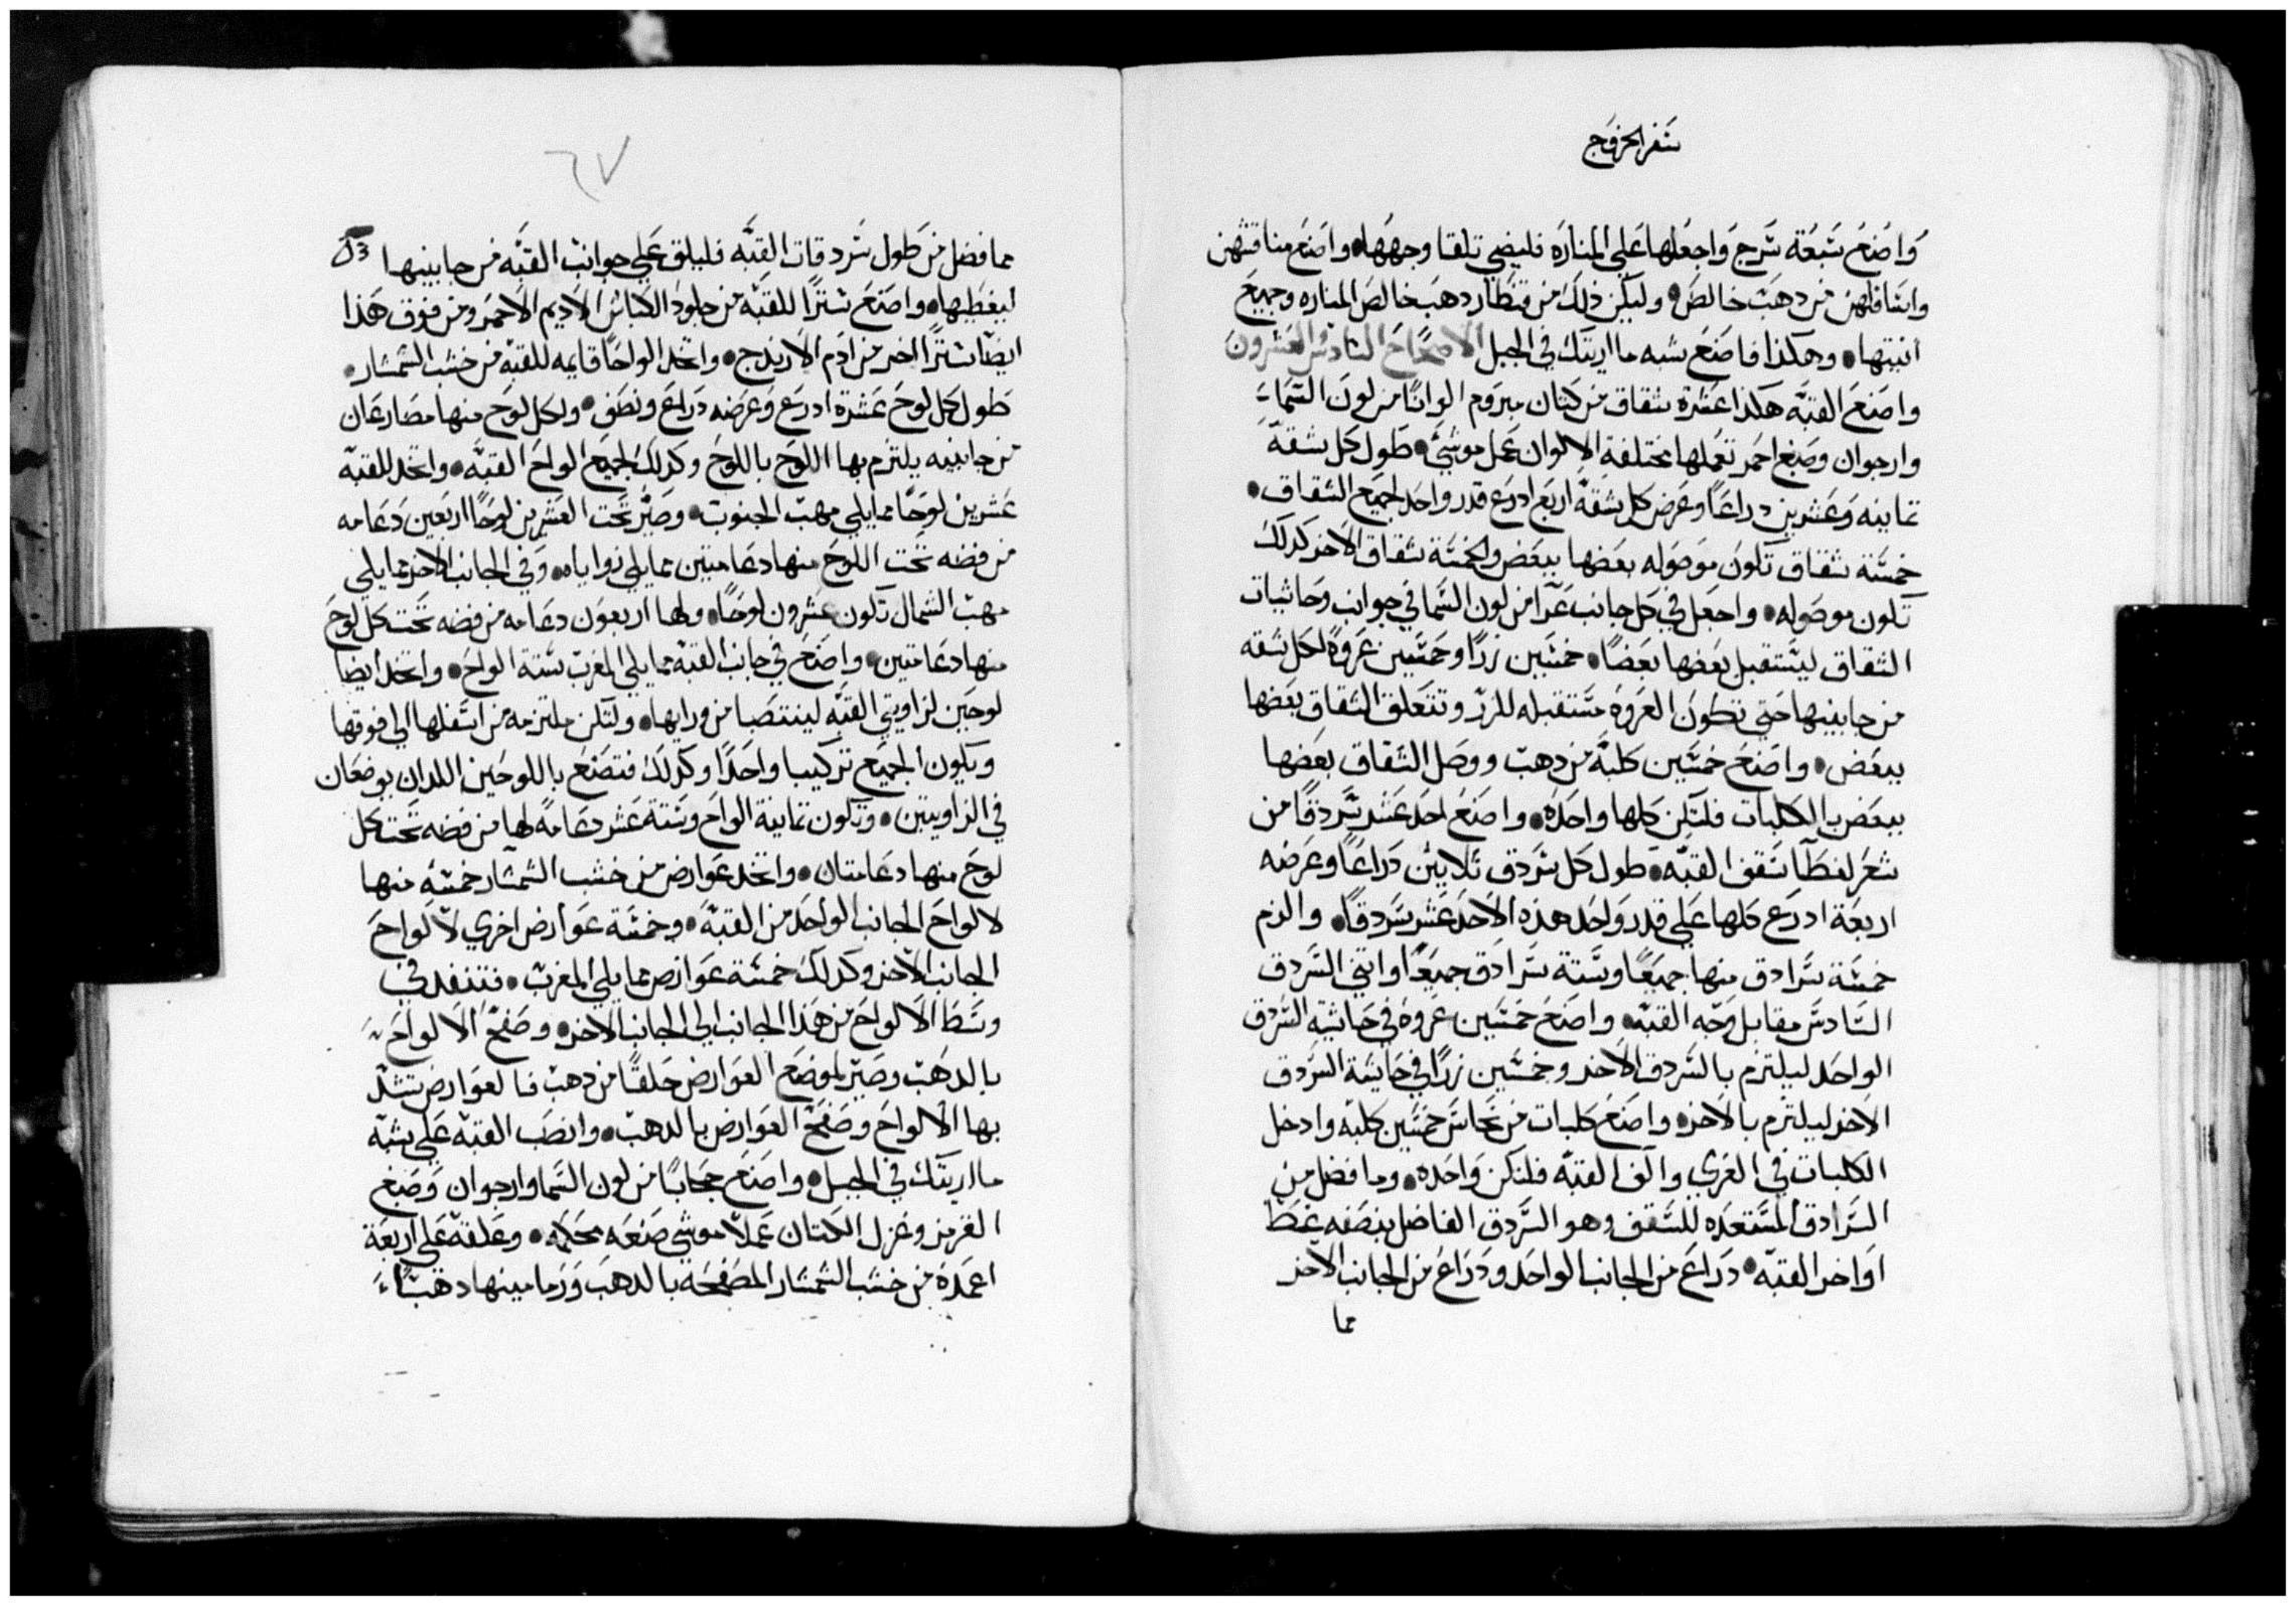 سفر الخروج
واصنع سبعة سرج واجعلها علي المناره فليضي تلقا وجهها واصنع مناقشهن
واسافلهن من دهب خالص وليكن ذلك من قنطار دهب خالص المناره وجميع
انيتها وهكذا فاصنع بشبه ما اريتك في الجبل الاصحاح السادس العشرون
واصنع القبه هكذا عشرة شقاق من كتان مبروم الوانًا من لون السماء
وارجوان وصبغ احمر تعملها مختلفة الالوان عمل موشيء طول كل شقة
تمانيه وعشرين دراعًا وعرض كل شقة اربع ادرع قدر واحد لجميع الشقاق
خمسة شقاق تكون موصوله بعضها ببعض والخمسة شقاق الاخر كدلك
تكون موصوله واجعل في كل جانب عرًا من لون السما في جوانب وحاشيات
الشقاق ليستقبل بعضها بعضًا خمسين زرًا وخمسين عروة لكل شقه
من جابنيها حتي تكون العروه مستقبله للزر وتتعلق الشقاق بعضها
ببعض واصنع خمسين كلبة من دهب ووصل الشقاق بعضها
ببعض بالكلبات فلتكن كلها واحدة واصنع احد عشر سردقًا من
شعر لغطآ سقف القبه طول كل سردق تلاتين دراعًا وعرضه
اربعة ادرع كلها علي قدر واحد هده الاحد عشر سردقًا والزم
خمسة سرادق منها جميعًا وستة سرادق جميعًا واتني السردق
السادس مقابل وجه القبه واصنع خمسين عروة في حاشية السردق
الواحد ليلتزم بالسردق الاخر وخمسين زرًا في حاشية السردق
الاخر ليلتزم بالاخر واصنع كلبات من نحاس خمسين كلبه وادخل
الكلبات في العري والف القبه فلتكن واحده وما فضل من
السرادق المستعده للسقف وهو السردق الفاضل بنصفه غطا
اواخر القبه دراع من الجانب الواحد ودراع من الجانب الاخر
مما
٦٧
مما فضل من طول سردقات القبه فليلق علي جوانب القبه من جانبيها
ليغطيها واصنع سترًا للقبه من جلود الكباش الاديم الاحمر ومن فوق هذا
ايضًا سترًا اخر من ادم الارندج واتخد الواحًا قايمه للقبه من خشب الشمشار
طول كل لوح عشرة ادرع وعرضه دراع ونصف ولكل لوح منها مصارعان
من جانبيه يلتزم بها اللوح باللوح وكدلك لجميع الواح القبه واتخد للقبه
عشرين لوحًا مما يلي مهب الجنوب وصير تحت العشرين لوحًا اربعين دعامه
من فضه تحت اللوح منها دعامتين مما يلي زواياه وفي الجانب الاخر مما يلي
مهب الشمال تكون عشرون لوحًا ولها اربعون دعامه من فضه تحت كل لوح
منها دعامتين واصنع في جانب القبه مما يلي المغرب ستة الواح واتخد ايضا
لوحين لزاويتي القبه لينتصبا من ورايها ولتكن ملتزمه من اسفلها الي فوقها
ويكون الجميع تركيبا واحدًا وكدلك فتصنع باللوحين اللدان يوضعان
في الزاويتين وتكون تمانية الواح وستة عشر دعامة لها من فضه تحت كل
لوح منها دعامتان واتخد عوارض من خشب الشمشار خمسة منها
لالواح الجانب الواحد من القبه وخمسة عوارض اخري لالواح
الجانب الاخر وكدلك خمسة عوارض مما يلي المغرب فتنفد في
وسط الالواح من هدا الجانب الي الجانب الاخر وصفح الالواح
بالدهب وصير لموضع العوارض حلقًا من دهب فالعوارض تشد
بها الالواح وصفح العوارض بالدهب وانصب القبه علي شبه
ما اريتك في الجبل واصنع حجابًا من لون السما وارجوان وصبغ
القرمز وغزل الكتان عملًا موشي صنعه محكمه وعلقه علي اربعة
اعمدة من خشب الشمشار المصفحه بالدهب ورمامينها دهبًا